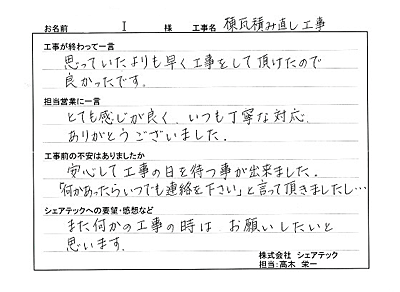 お名前 I 様 工事名 棟瓦積み直し工事
工事が終わって一言
思っていたよりも早く工事をして頂けたので
良かったです.
担当営業に一言
とても感じが良く、いつも丁寧な対応、
ありがとうございました.
工事前の不安はありましたか
安心して工事の日を待つ事が出来ました.
「何かあったらいつでも連絡を下さい」と言って頂きましたし…
シェアテックへの要望・感想など
また何かの工事の時は お願いしたいと
思います.
株式会社 シェアテック
担当:高木 栄一